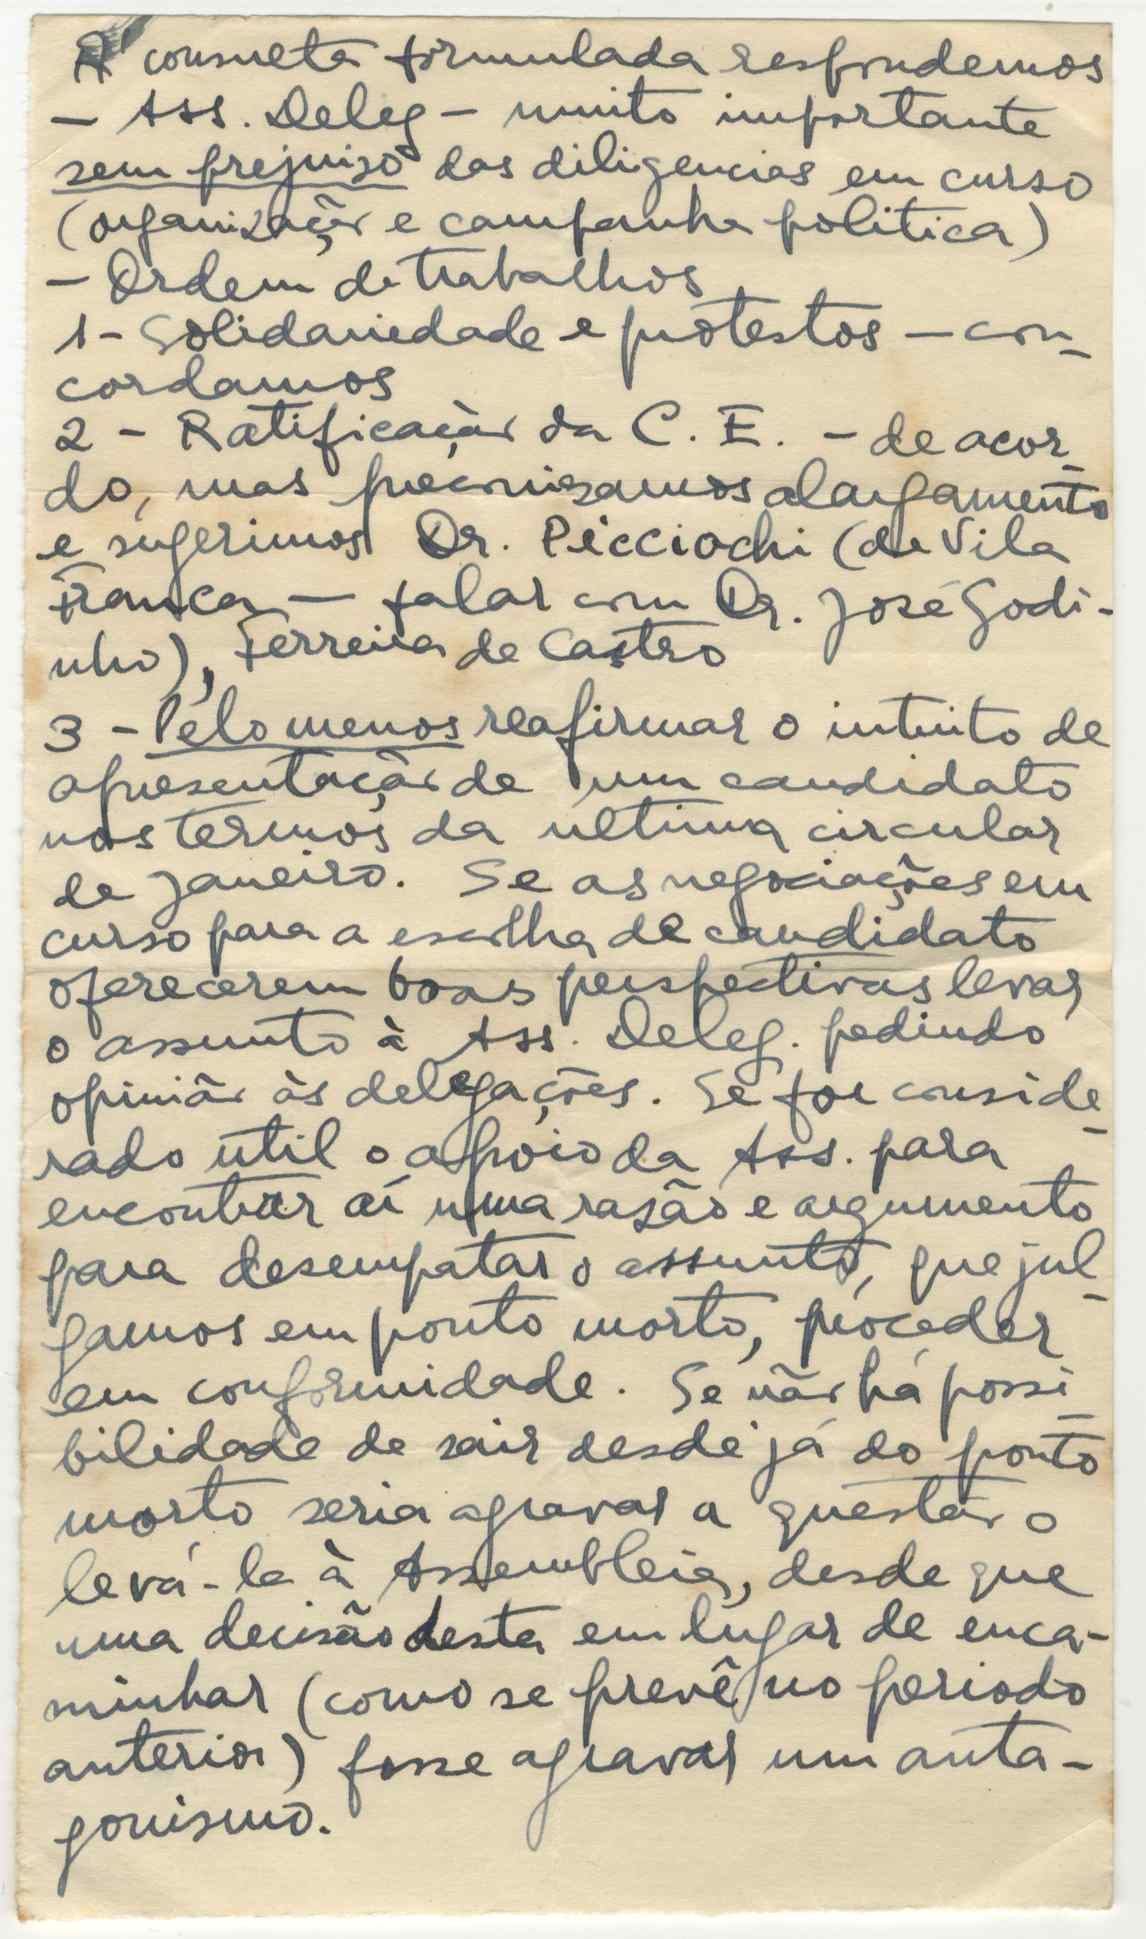 À consulta formulada respondemos
— Ass. Deleg — muito importante
sem prejuizo das diligencias em curso
(organização e campanha politica)
— Ordem de trabalhos
1 - Solidariedade e protestos — con-
cordamos
2 - Ratificação da C. E. - de acor-
do, mas preconizamos alargamento
e sugerimos Dr. Picciochi (de Vila
Franca — falar com Dr. José Godi-
nho), Ferreira de Castro
3 - Pelo menos reafirmar o intuito de
apresentação de um candidato
nos termos da ultima circular
de Janeiro. Se as negociações em
curso para a escolha de candidato
oferecerem boas perspectivas levar
o assunto à Ass. Deleg. pedindo
opinião às delegações. Se for conside-
rado util o apoio da Ass. para
encontrar aí uma razão e argumento
para desempatar o assunto, que jul-
gamos em ponto morto, proceder
em conformidade. Se não há possi-
bilidade de sair desde já do ponto
morto seria agravar a questão o
levá-la à Assembleia, desde que
uma decisão desta em lugar de enca-
minhar (como se prevê no periodo
anterior) fosse agravar um anta-
gonismo.